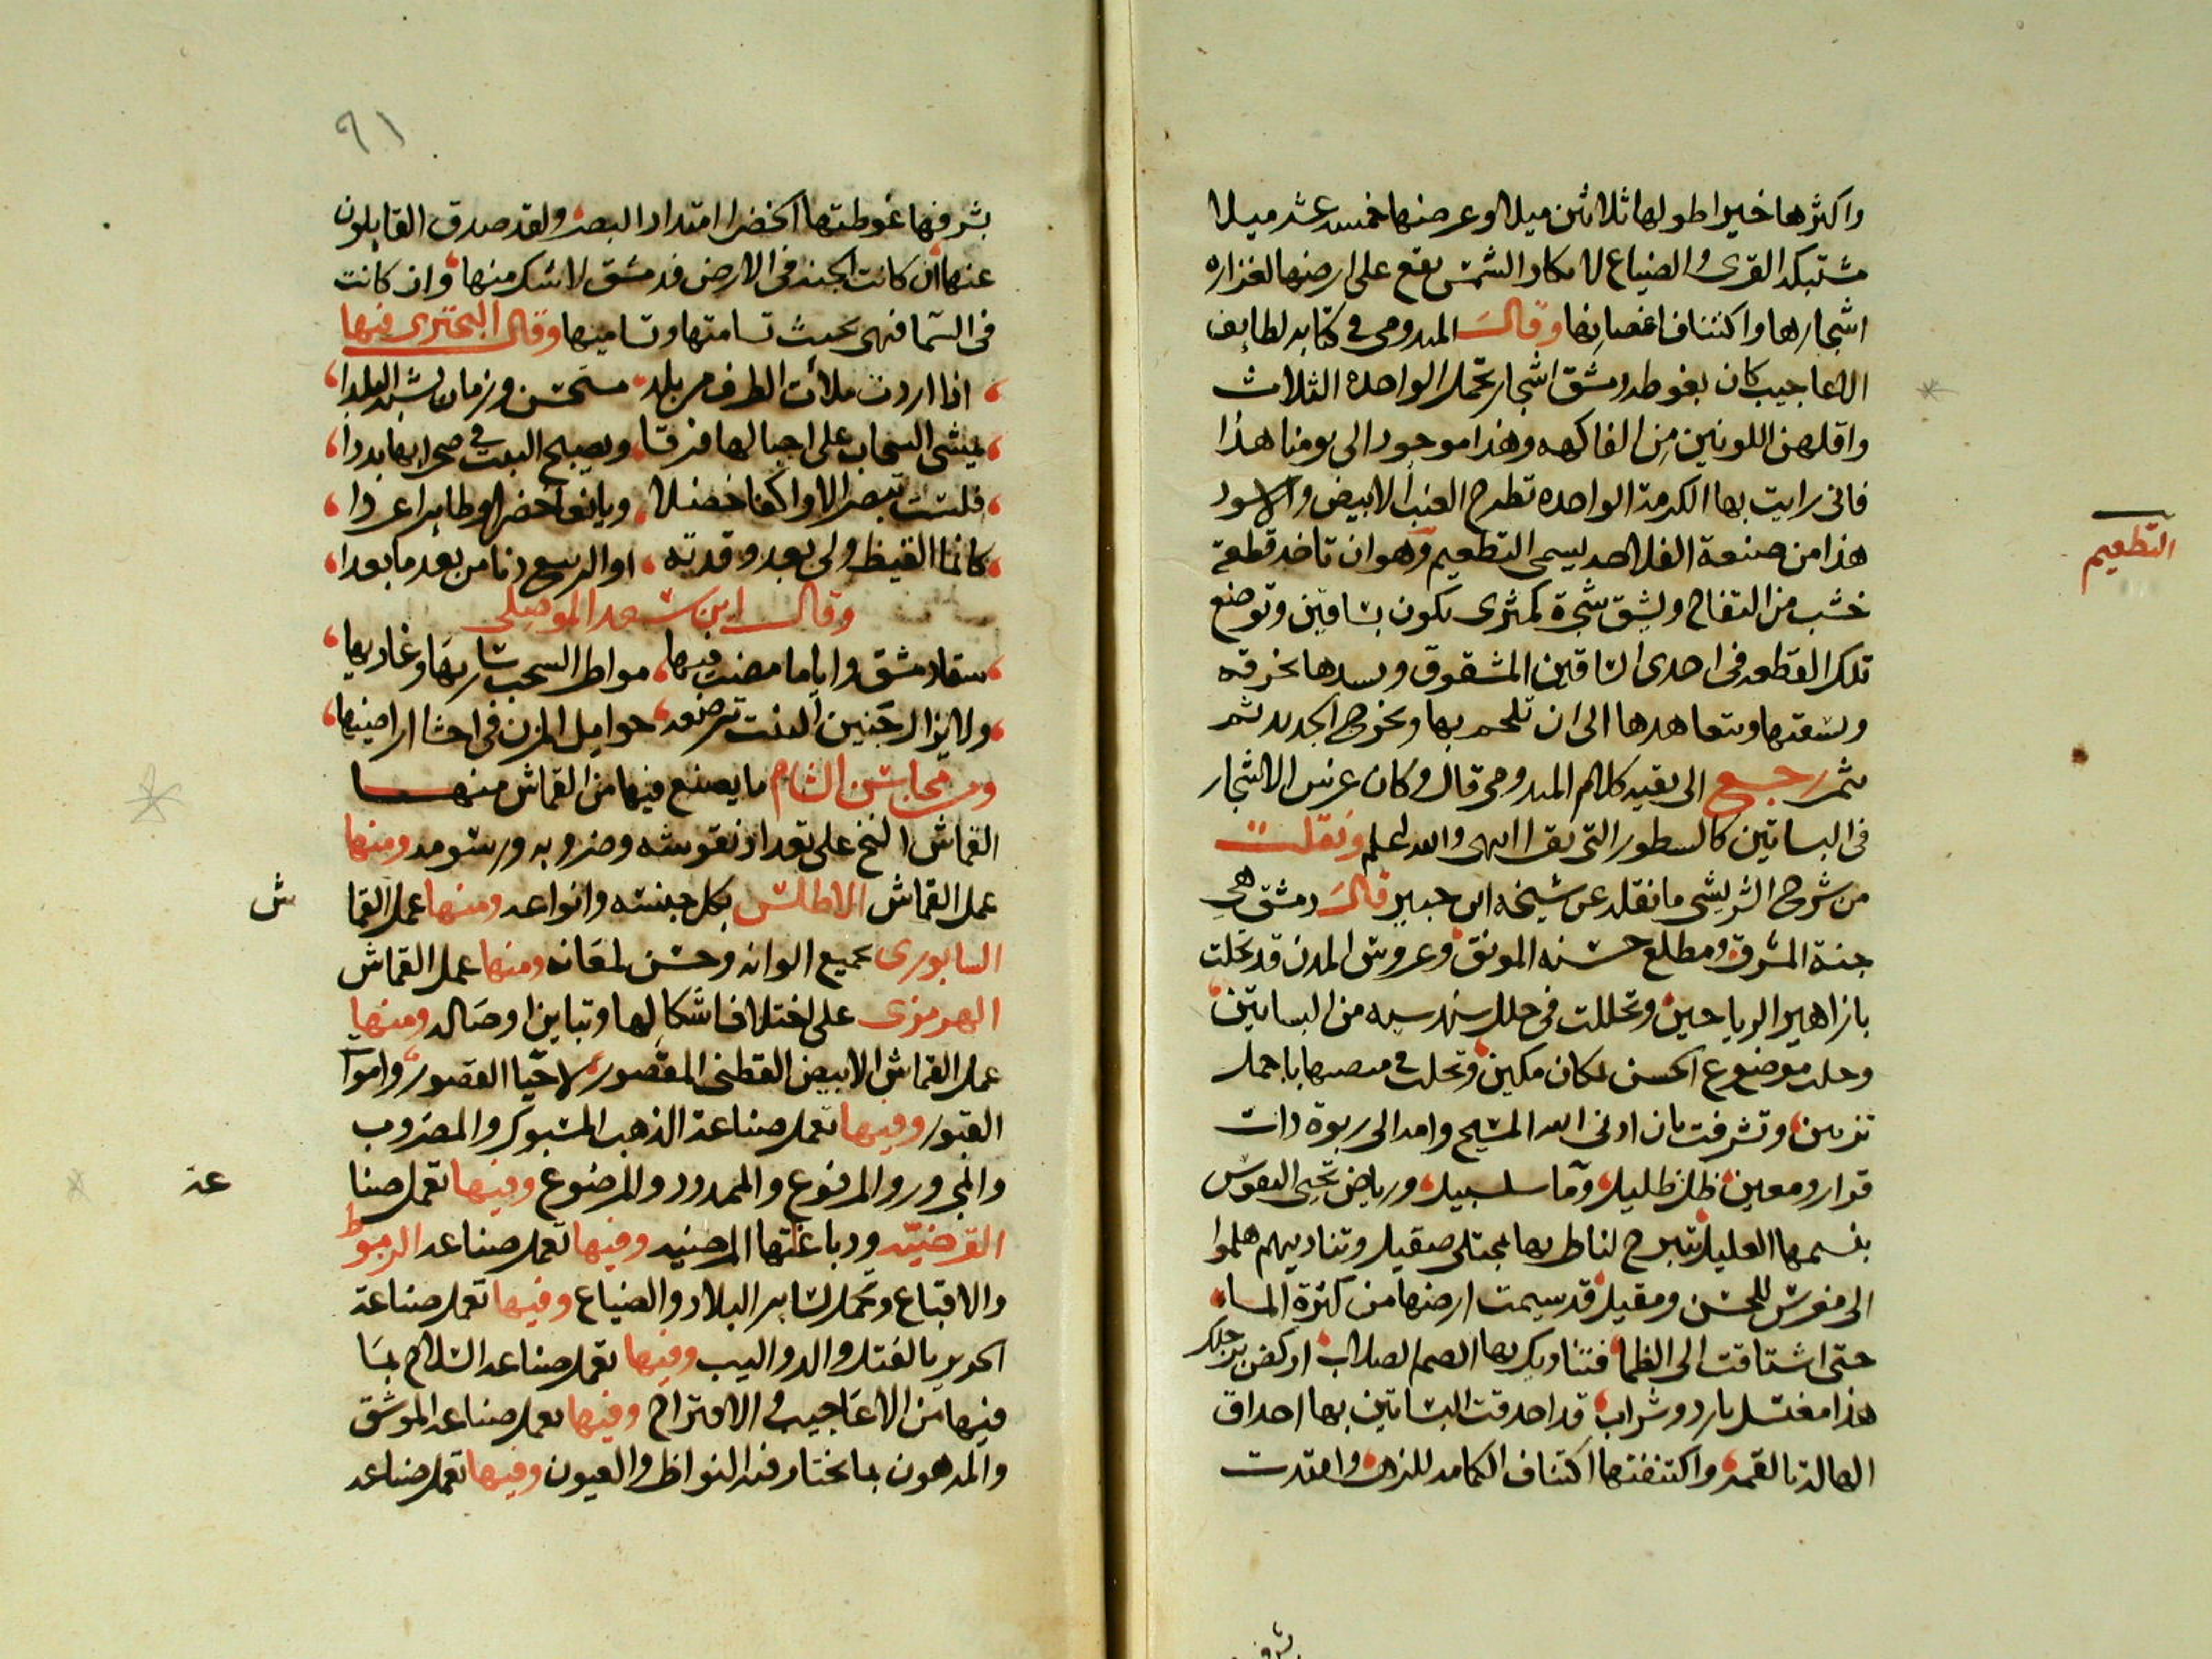 واكثرها خيرا طولها ثلاثين ميلا وعرضها خمسه عشر ميلا
مشتبكه القرى والضياع لا تكاد الشمس يقع على ارضها لغزاره
اشجارها واكتناف اغصانها وقال المدومى فى كتابه لطايف
الاعاجيب كان بغوطه دمشق اشجار تحمل الواحده الثلاث
واقلهن اللونين من الفاكهه وهذا موجود الى يومنا هذا
فانى رايت بها الكرمة الواحده تطرح العنب الابيض والاسود
هذا من صنعة الفلاحه يسمى التطعيم وهو ان تاخذ قطعة
التطعيم
خشب من التفاح ويشق شجرة كمثرى يكون بساقين وتوضع
تلك القطعه فى احدى الساقين المشقوق ويسدها بخرقه
ويسقيها ويتعاهدها الى ان تلحم بها ويخرج الجديد ثمر
ثم رجع الى بقيه كلام المدومى قال وكان غرس الاشجار
فى البساتين كالسطور التى يقرا انتهى والله اعلم ونقلت
من شرح الشريشى ما نقله عن شيخه ابن جبير قال دمشق هى
جنة المشرق ومطلع حسنه المونق وعروس المدن قد تحلت
بازاهير الرياحين وتحللت فى حلل سندسيه من البساتين
وحلت موضوع الحسن بمكان مكين وتحلت فى منصتها باجمل
تزيين وتشرفت بان اوى الله المسيح وامه الى ربوة ذات
قرار ومعين ظل ظليل وما سلسبيل ورياض تحيى النفوس
بنسيمها العليل تتبرج لناظريها بمجتلى صقيل وتناديهم هلموا
الى معرس للحسن ومقيل قد سيمت ارضها من كثرة الماء
حتى اشتاقت الى الظما فتناديك بها الصم الصلاب اركض برجلك
هذا مغتسل بارد وشراب قد احدقت البساتين بها احداق
الهالة بالقمر واكتنفتها اكتناف الكمامه للزهر وامتدت
٩١
بشرفيها غوطتها الخضرا امتداد البصر ولقد صدق القايلون
عنها ان كانت الجنه فى الارض فدمشق لا شك منها وان كانت
فى السما فهى بحيث تسامتها وتسامينها وقال البحترى فيها
اذا اردت ملات الطرف من بلد مستحسن وزمان يشبه البلدا
يمشى السحاب على اجبالها فرقا ويصبح النبت فى صحرايها بددا
فلست تبصر الا واكفا خضلا ويانعا خضرا وطايرا غردا
كانما القيظ ولى بعد وقدته او الربيع دنا من بعد ما بعدا
وقال ابن سعد الموصلى
سقا دمشق واياما مضت فيها مواطر السحب ساريها وغاديها
ولا يزال جنين النبت ترضعه حوامل المزن فى احشا اراضيها
ومن محاسن الشام ما يصنع فيها من القماش منها
القماش النخ على تعداد نقوشه وضروبه ورسومه ومنها
عمل القماش الاطلس بكل جنسه وانواعه ومنها عمل القما
ش
السابورى بجميع الوانه وحسن لمعانه ومنها عمل القماش
الهرمزى على اختلاف اشكالها وتباين اوصاله ومنها
عمل القماش الابيض القطنى المقصور لاحيا القصور واموا
القبور وفيها تعمل صناعة الذهب المسبوك والمضروب
والمجرور والمرفوع والممدود والمرضوع وفيها تعمل صنا
عة
القرضيه ودباغتها المرضيه وفيها تعمل صناعه الرموط
والاقباع وتحمل لساير البلاد والضياع وفيها تعمل صناعة
الحرير بالفتل والدواليب وفيها تعمل صناعه السلاح بما
فيها من الاعاجيب والاقتراح وفيها تعمل صناعه الموشق
والمدهون بما تختار فيه النواظر والعيون وفيها تعمل صناعه